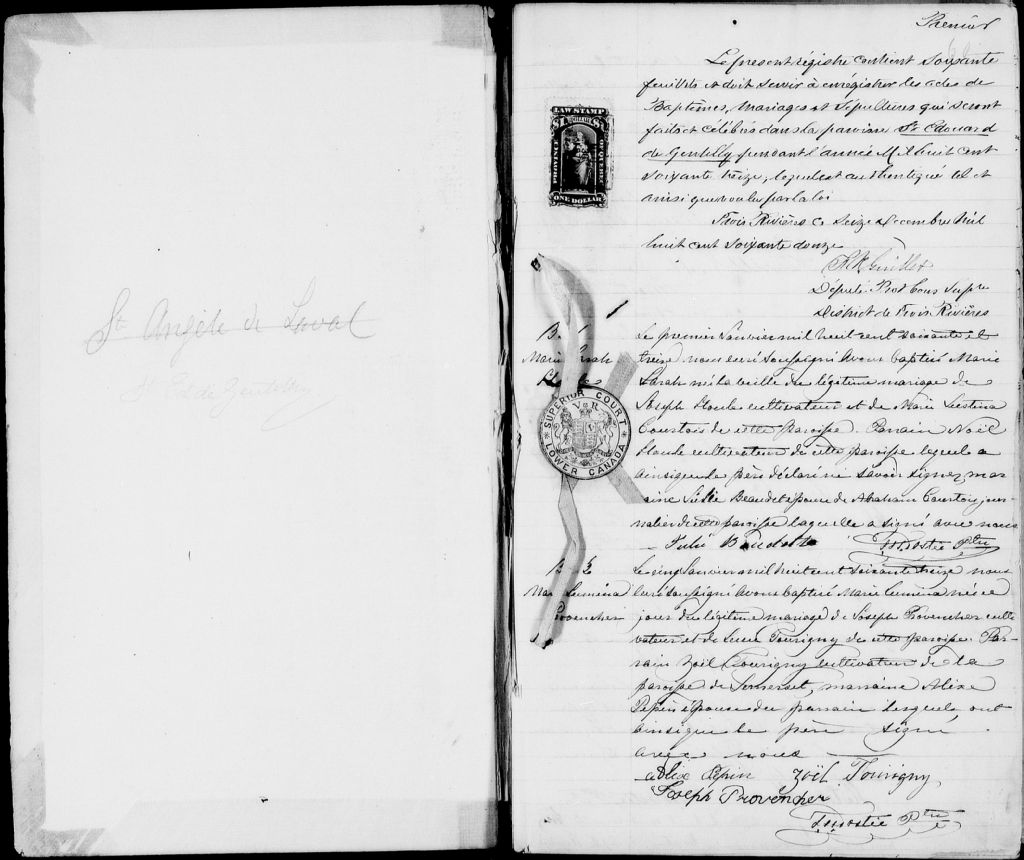 St Angèle de Laval
St Ed de Gentilly
Premier
Le présent régistre contient soixante
feuillets et doit servir à enrégistrer les actes de
Baptêmes, Mariages et Sépultures qui seront
faits et célébrés dans la paroisse St Edouard
de Gentilly pendant l'année Mil huit cent
soixante treize, lequel est authentiqué tel et
ainsi que voulu par la loi
Trois Rivières ce seize décembre Mil
huit cent soixante douze
Guillet
Député Prot Cour Supre
District de Trois Rivières
LAW STAMP
PROVINCE OF QUEBEC
ONE DOLLAR
SUPERIOR COURT
V R
LOWER CANADA
B.
Marie Sarah
Le premier Janvier mil huit cent soixante et
treize nous curé soussigné avons baptisé Marie
Sarah née la veille du légitime mariage de
Joseph Houle cultivateur et de Marie
Courtois de cette paroisse. Parrain Noël
Houle cultivateur de cette paroisse lequel a
ainsi que le père déclaré ne savoir signer, mar-
raine Julie Beaudet épouse de Abraham Courtois jour-
nalier de cette paroisse laquelle a signé avec nous
Julie Beaudette
Ptre
B. 2
Marie Luména
Provencher
Le cinq Janvier mil huit cent soixante treize nous
curé soussigné avons baptisé Marie Luména née ce
jour du légitime mariage de Joseph Provencher culti-
vateur et de Luce Tourigny de cette paroisse. Par-
rain Zoël Tourigny cultivateur de la
paroisse de Somerset, marraine Alixe
Pepin épouse du parrain lesquels ont
ainsi que le père signé
avec nous
Alix Pepin Zoël Tourigny
Joseph Provencher
Ptre